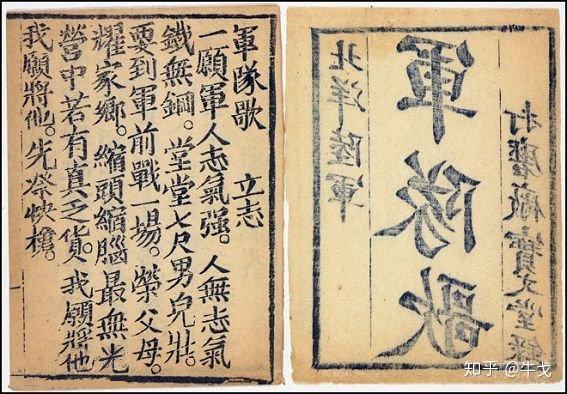 軍隊歌 立志
一願軍人志氣强。人無志氣
鐵無鋼。堂堂七尺男兒壯。
要到軍前戰一塲。榮父母。
耀家鄉。縮頭縮腦最無光
營中若有真乏貨。我願將他
我願將他。先祭快槍。
北洋陸軍
軍隊歌
打磨廠寶文堂
知乎 @牛戈